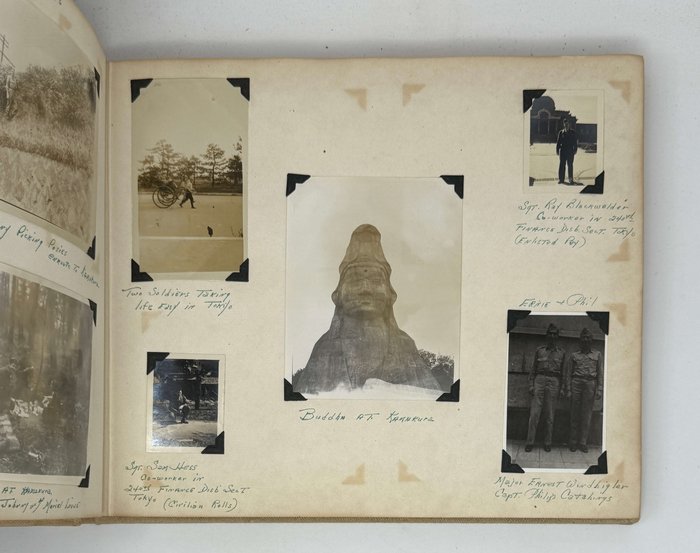 Picking Posies
enroute to Kamakura
AT KAMAKURA.
Two Soldiers Taking
life easy in Tokyo
Sgt. Sam Hess
Co-worker in
240th Finance Disb. Sect
Tokyo (Civilian Rolls)
Buddha AT KAMAKURA
Sgt. Roy Blackwelder
Co-worker in 240th
Finance Disb. Sect. Tokyo
(Enlisted Pay)
Ernie + Phil
Major Ernest
Capt. Philip